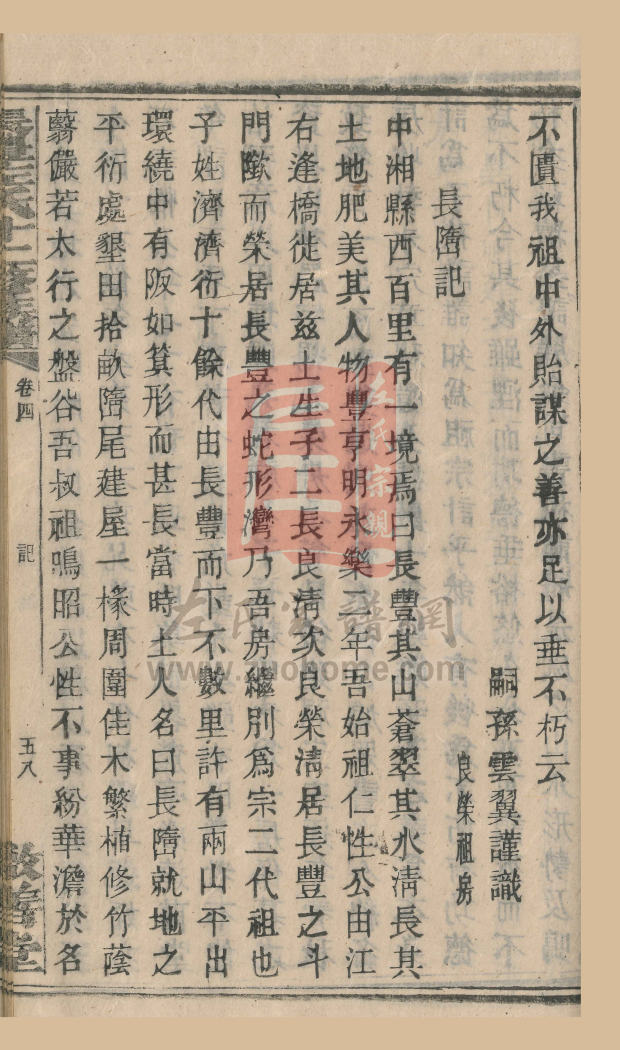 不匱我祖中外貽謀之善亦足以垂不朽云
嗣孫雲翼謹識
長隯記
良榮祖房
中湘縣西百里有一境焉曰長豐其山蒼翠其水清長其
土地肥美其人物豊亨明永樂二年吾始祖仁性公由江
右逢橋徙居茲土生子二長良清次良榮清居長豐之斗
門歘而榮居長豐之蛇形灣乃吾房繼別爲宗二代祖也
子姓濟濟衍十餘代由長豐而下不數里許有兩山平出
環繞中有阪如箕形而甚長當時土人名曰長隯就地之
平衍處墾田拾畝隯尾建屋一椽周圍佳木繁植修竹蔭
翳儼若太行之盤谷吾叔祖鳴昭公性不事紛華澹於名
卷四
記
五八
敦善堂
左氏宗親
左氏家譜網
www.zuohome.com